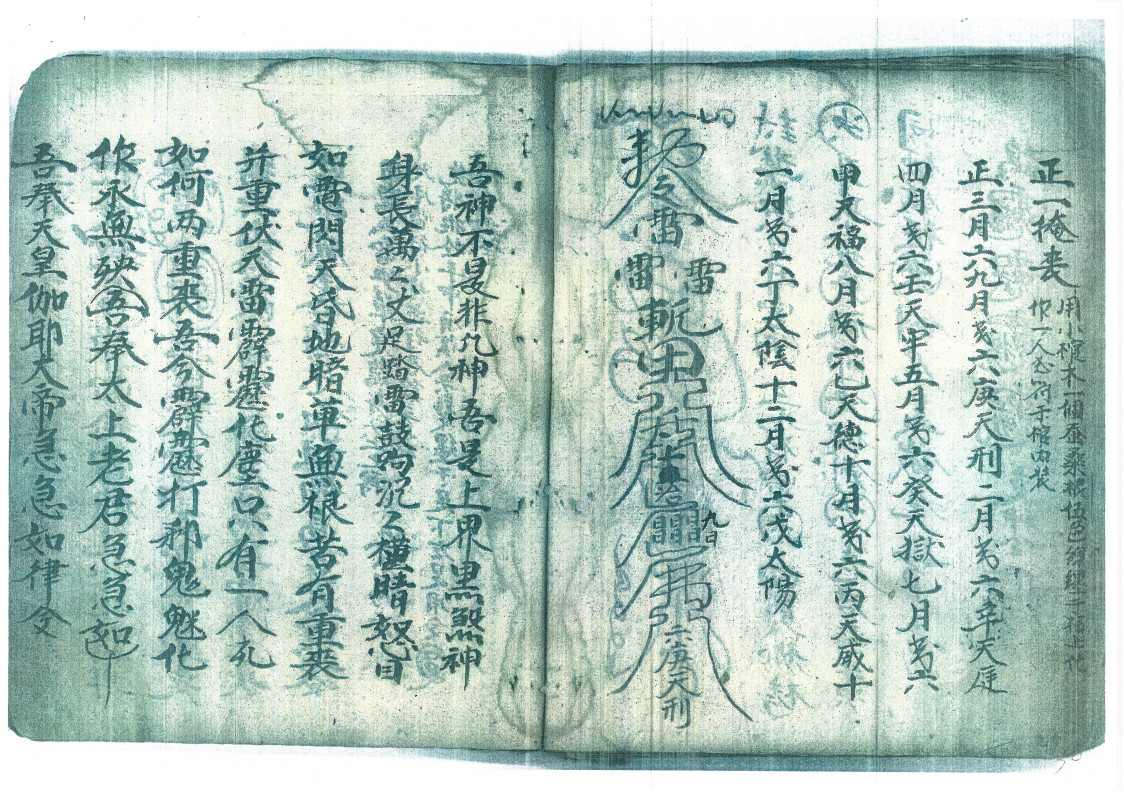 正一掩丧
用小棺木一個蚕桑根伍色線經二
作一人念符于棺内裝
正三月六九月哭六庚天刑二月哭六辛天庭
四月哭六壬天牢五月哭六癸天獄七月哭六
甲天福八月哭六乙天德十月哭六丙天威十
一月哭六丁太陰十二月哭六戊太陽
勅令雷
雷雷
斬
九
六庚天刑
吾神不是非凡神吾是上界黑煞神
身長萬々丈足踏雷鼓暗怒目
如電閃天昏地暗草無根苦有重丧
并重伏天雷霹靂化塵只有一人死
如何两重丧吾今霹靂打邪鬼魁化
作永無殃吾奉太上老君急急如
吾奉天皇伽耶大帝急急如律令